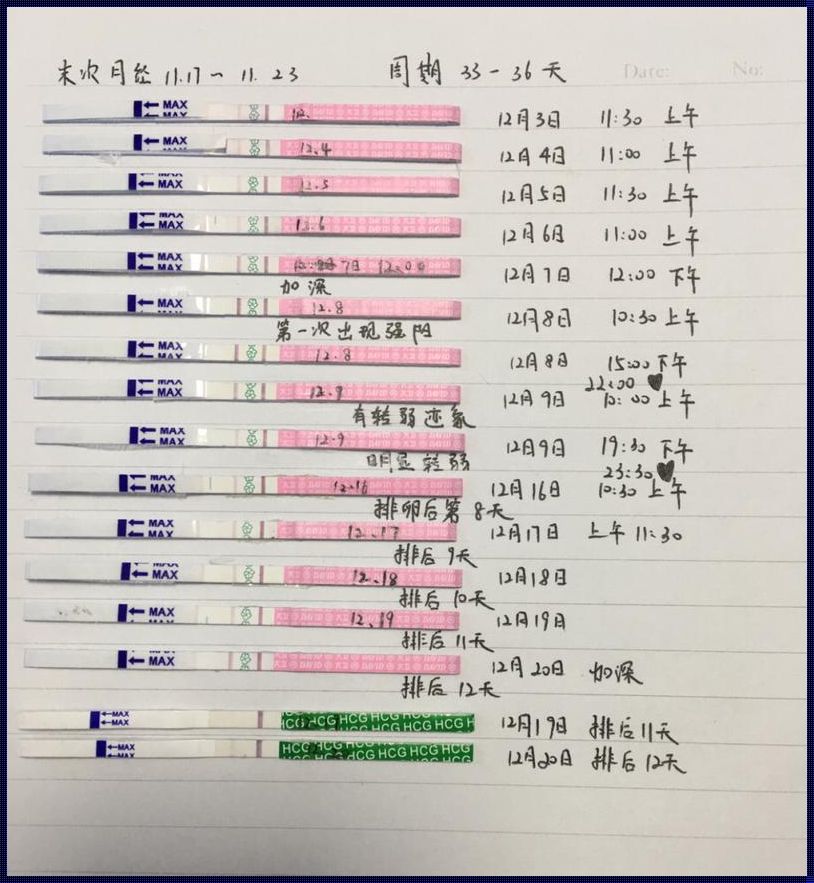 末次月经 11.17～11.23 周期 33-36天 Date: No:
MAX MAX 12. 12月3日 11:30 上午
MAX MAX 12.4 12月4日 11:00 上午
MAX MAX 12.5 12月5日 11:30 上午
MAX MAX 12.6 12月6日 11:00 上午
MAX MAX 7日 12:00 12月7日 12:00 下午
加深
MAX MAX 12.8 12月8日 10:30 上午
第一次出现强阳
MAX MAX 12.8 12月8日 15:00 下午
22:00 ♥
MAX MAX 12.9 12月9日 10:00 上午
有转弱迹象
MAX MAX 12.9 12月9日 19:30 下午
明显转弱
23:30 ♥
MAX MAX 12.16 12月16日 10:30 上午
排卵后第8天
MAX MAX 12.17 12月17日 上午 11:30
排后9天
MAX MAX 12.18 12月18日
排后10天
MAX MAX 12.19 12月19日
排后11天
MAX MAX 12月20日 加深
排后12天
MAX MAX HCG HCG HCG HCG HCG 12月19日 排后11天
MAX MAX HCG HCG HCG HCG HCG 12月20日 排后12天